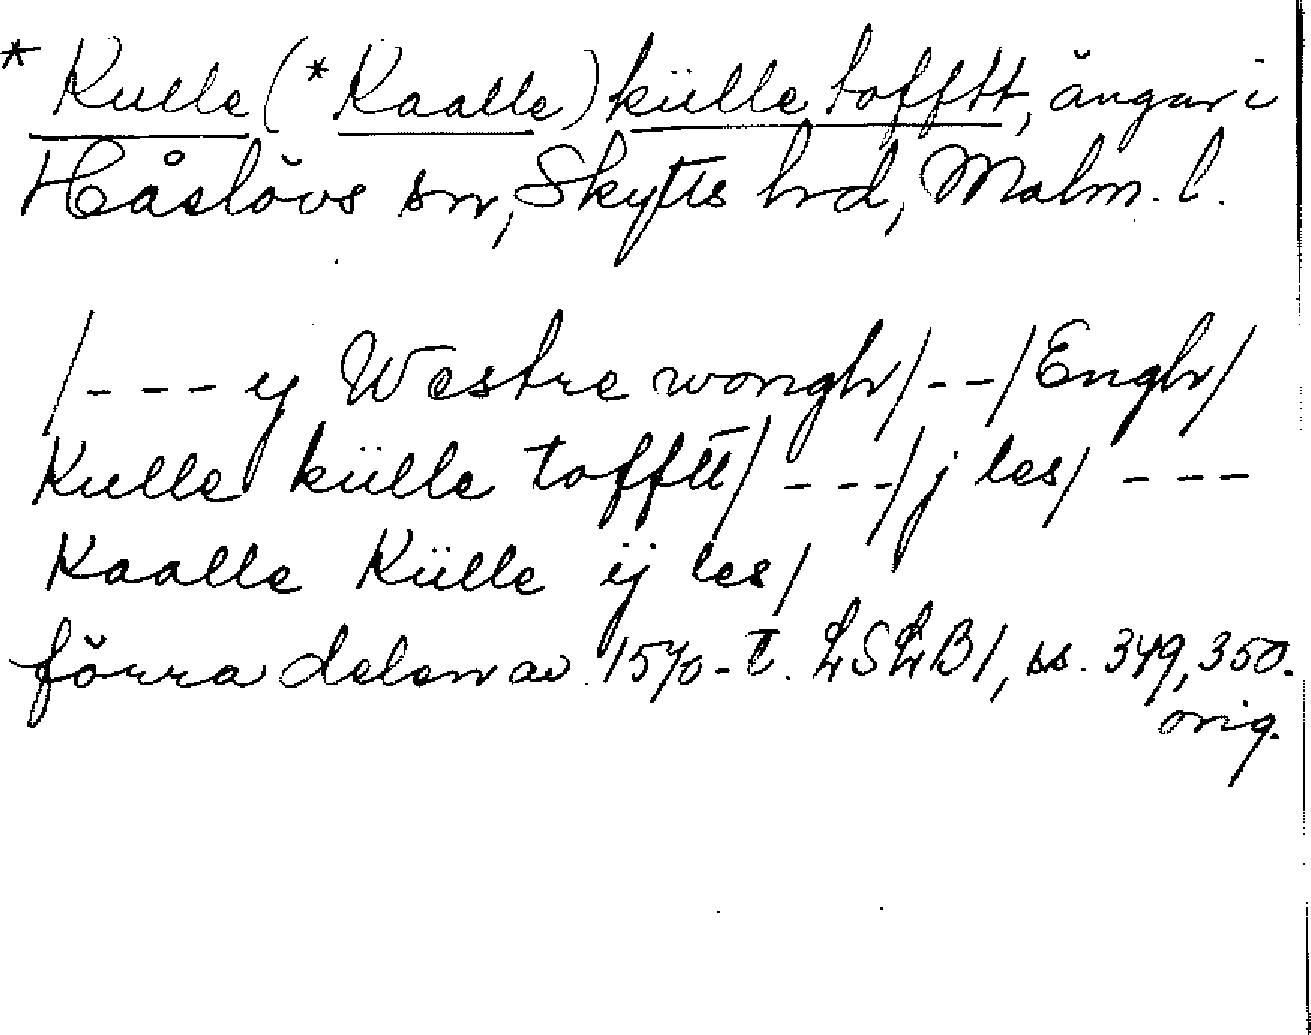 * Kulle (* Kaalle) külle tofftt, ängar i
Håslövs sn, Skytts hd, Malm. l.
/--- y Westre wongh/ -- / Engh/
Kulle külle tofftt/ --- / j les/ ---
Kaalle Külle ij les/
förra delen av 1570-t. LSLB 1, ss. 349, 350.
orig.